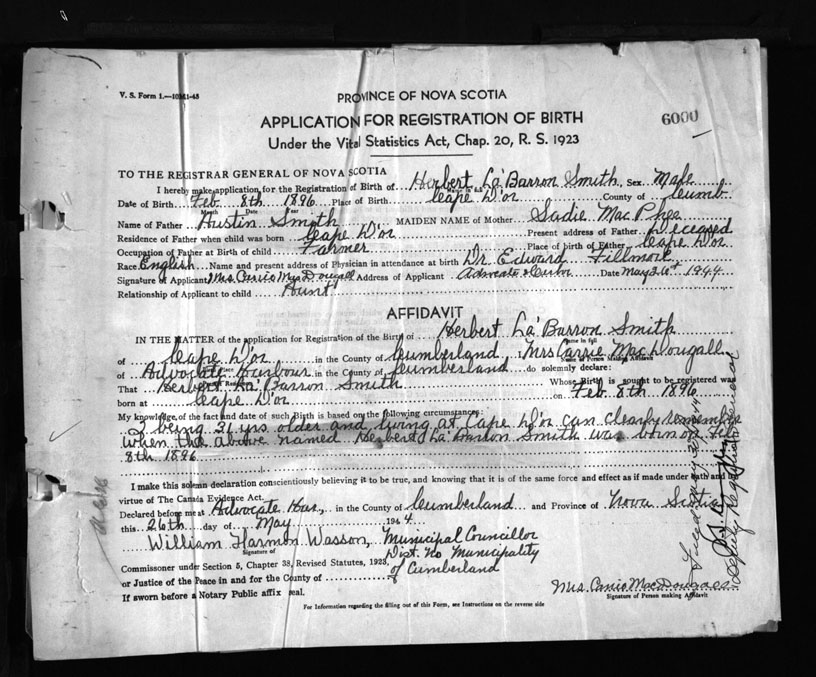 V. S. Form 1.—10M1-45
PROVINCE OF NOVA SCOTIA
6000
APPLICATION FOR REGISTRATION OF BIRTH
Under the Vital Statistics Act, Chap. 20, R. S. 1923
TO THE REGISTRAR GENERAL OF NOVA SCOTIA
I hereby make application for the Registration of Birth of Herbert La'Barron Smith, Sex Male
Date of Birth Feb 8th 1896 Place of Birth Cape D'or County of Cumb
Month Date Year
Name of Father Austin Smith MAIDEN NAME of Mother Sadie MacPhee
Residence of Father when child was born Cape D'or Present address of Father Deceased
Occupation of Father at Birth of child Farmer Place of birth of Father Cape D'or
Race English Name and present address of Physician in attendance at birth Dr. Edward Fillmore
Signature of Applicant Mrs Carrie MacDougall Address of Applicant Advocate Date May 26th, 1944
Relationship of Applicant to child Aunt
AFFIDAVIT
IN THE MATTER of the application for Registration of the Birth of Herbert La'Barron Smith
of Cape D'or in the County of Cumberland, Mrs Carrie MacDougall
of Advocate Harbour in the County of Cumberland do solemnly declare:
That Herbert La'Barron Smith Whose Birth is sought to be registered was
born at Cape D'or on Feb 8th 1896
My knowledge of the fact and date of such Birth is based on the following circumstances:
I being 21 yrs older and living at Cape D'or can clearly remember
when the above named Herbert La'Barron Smith was born on
8th 1896
I make this solemn declaration conscientiously believing it to be true, and knowing that it is of the same force and effect as if made under oath and by
virtue of The Canada Evidence Act.
Declared before me at Advocate Har., in the County of Cumberland and Province of Nova Scotia
this 26th day of May 1944.
William Harmon Wasson, Municipal Councillor
Signature of
Dist. No Municipality
Commissioner under Section 5, Chapter 38, Revised Statutes, 1923, of Cumberland
or Justice of the Peace in and for the County of
If sworn before a Notary Public affix seal.
Mrs. Carrie MacDougall
Signature of Person making Affidavit
For Information regarding the filling out of this Form, see Instructions on the reverse side
Deputy Registrar General